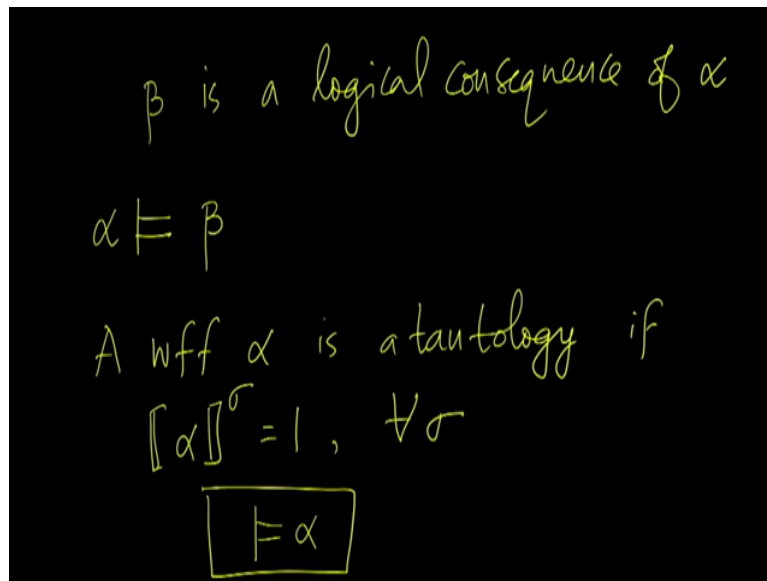 β is a logical consequence of α
α ⊨ β
A wff α is a tautology if
⟦α⟧^σ = 1, ∀σ
⊨ α